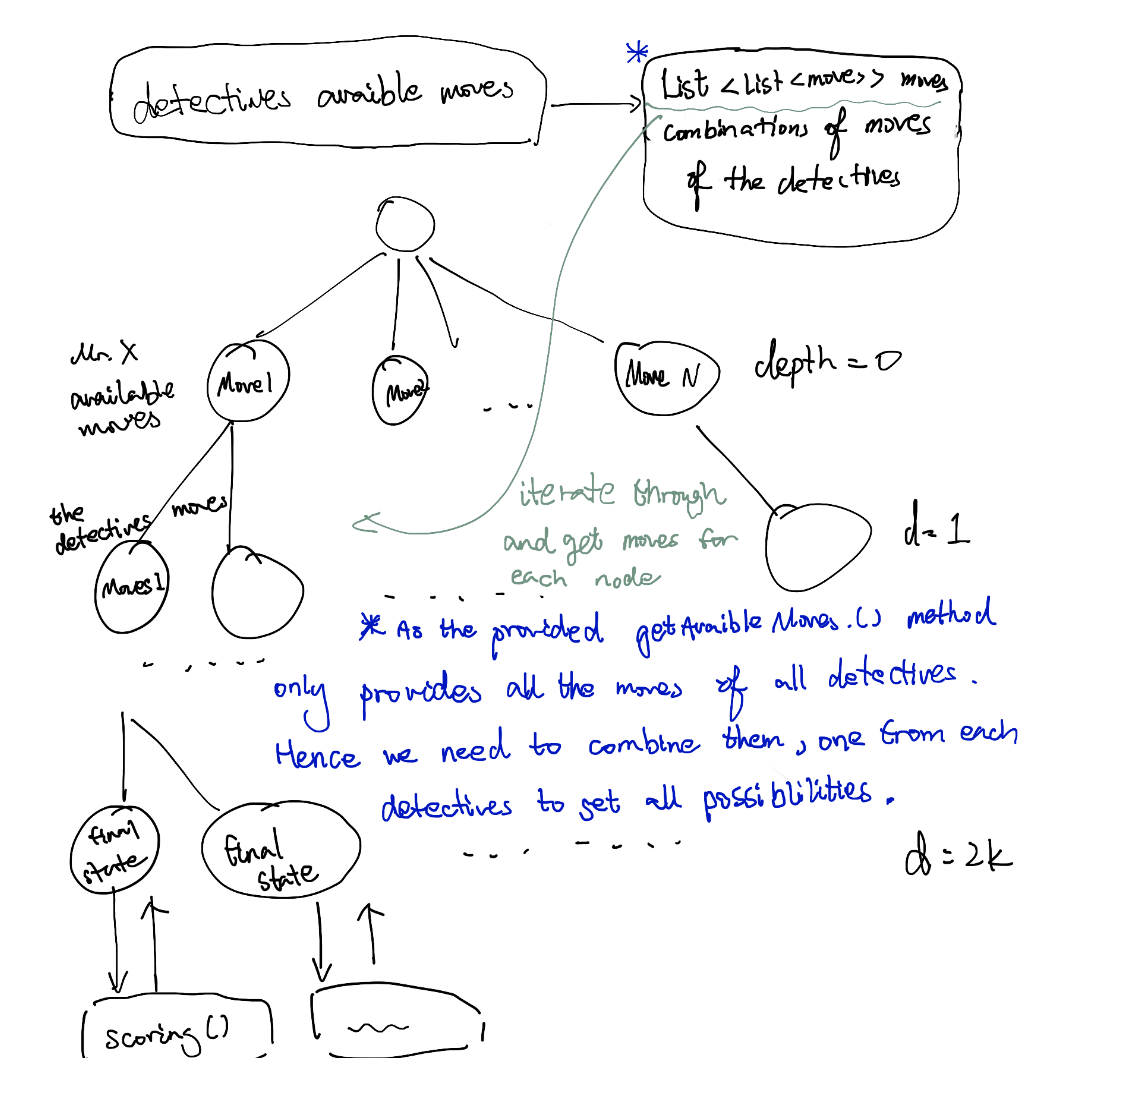 detectives avaible moves
*
List <List <moves>> moves
combinations of moves
of the detectives
Mr. X
available
moves
Move1
Move2
....
Move N
depth = 0
the
detectives moves
Moves1
iterate through
and get moves for
each node
d=1
* As the provided getAvaibleMoves.() method
only provides all the moves of all detectives.
Hence we need to combine them, one from each
detectives to get all possiblilities.
final
state
final
state
d=2k
scoring()